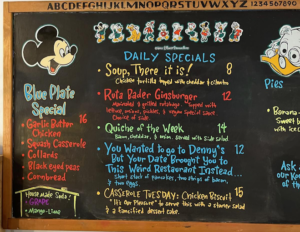 ABCDEFGHIJKLMNOPQRSTUVWXYZ 1234567890
DAILY SPECIALS
• Soup, There it is! 8
Chicken tortilla topped with cheddar & cilantro
• Ruta Bader Ginsburger 12
marinated & grilled rutabaga topped with
lettuce, onion, pickles, & vegan special sauce
Choice of side.
• Quiche of the Week 14
Bacon, cheddar, & onion. Served with side salad
• You Wanted to go to Denny's 12
But Your Date Brought You to
This Weird Restaurant Instead...
Short stack of pancakes, two strips of bacon,
& two eggs.
• CASSEROLE TUESDAY: Chicken Biscuit 15
It's our pleasure to serve this with a starter salad
& a fancified dessert cake.
Blue Plate
Special
16
• Garlic Butter
Chicken
• Squash Casserole
• Collards
• Black eyed peas
• Cornbread
House Made Soda!
• GRAPE
• Mango-Lime
Pies
• Banana
Sweet
with ice
Ask
our
of the